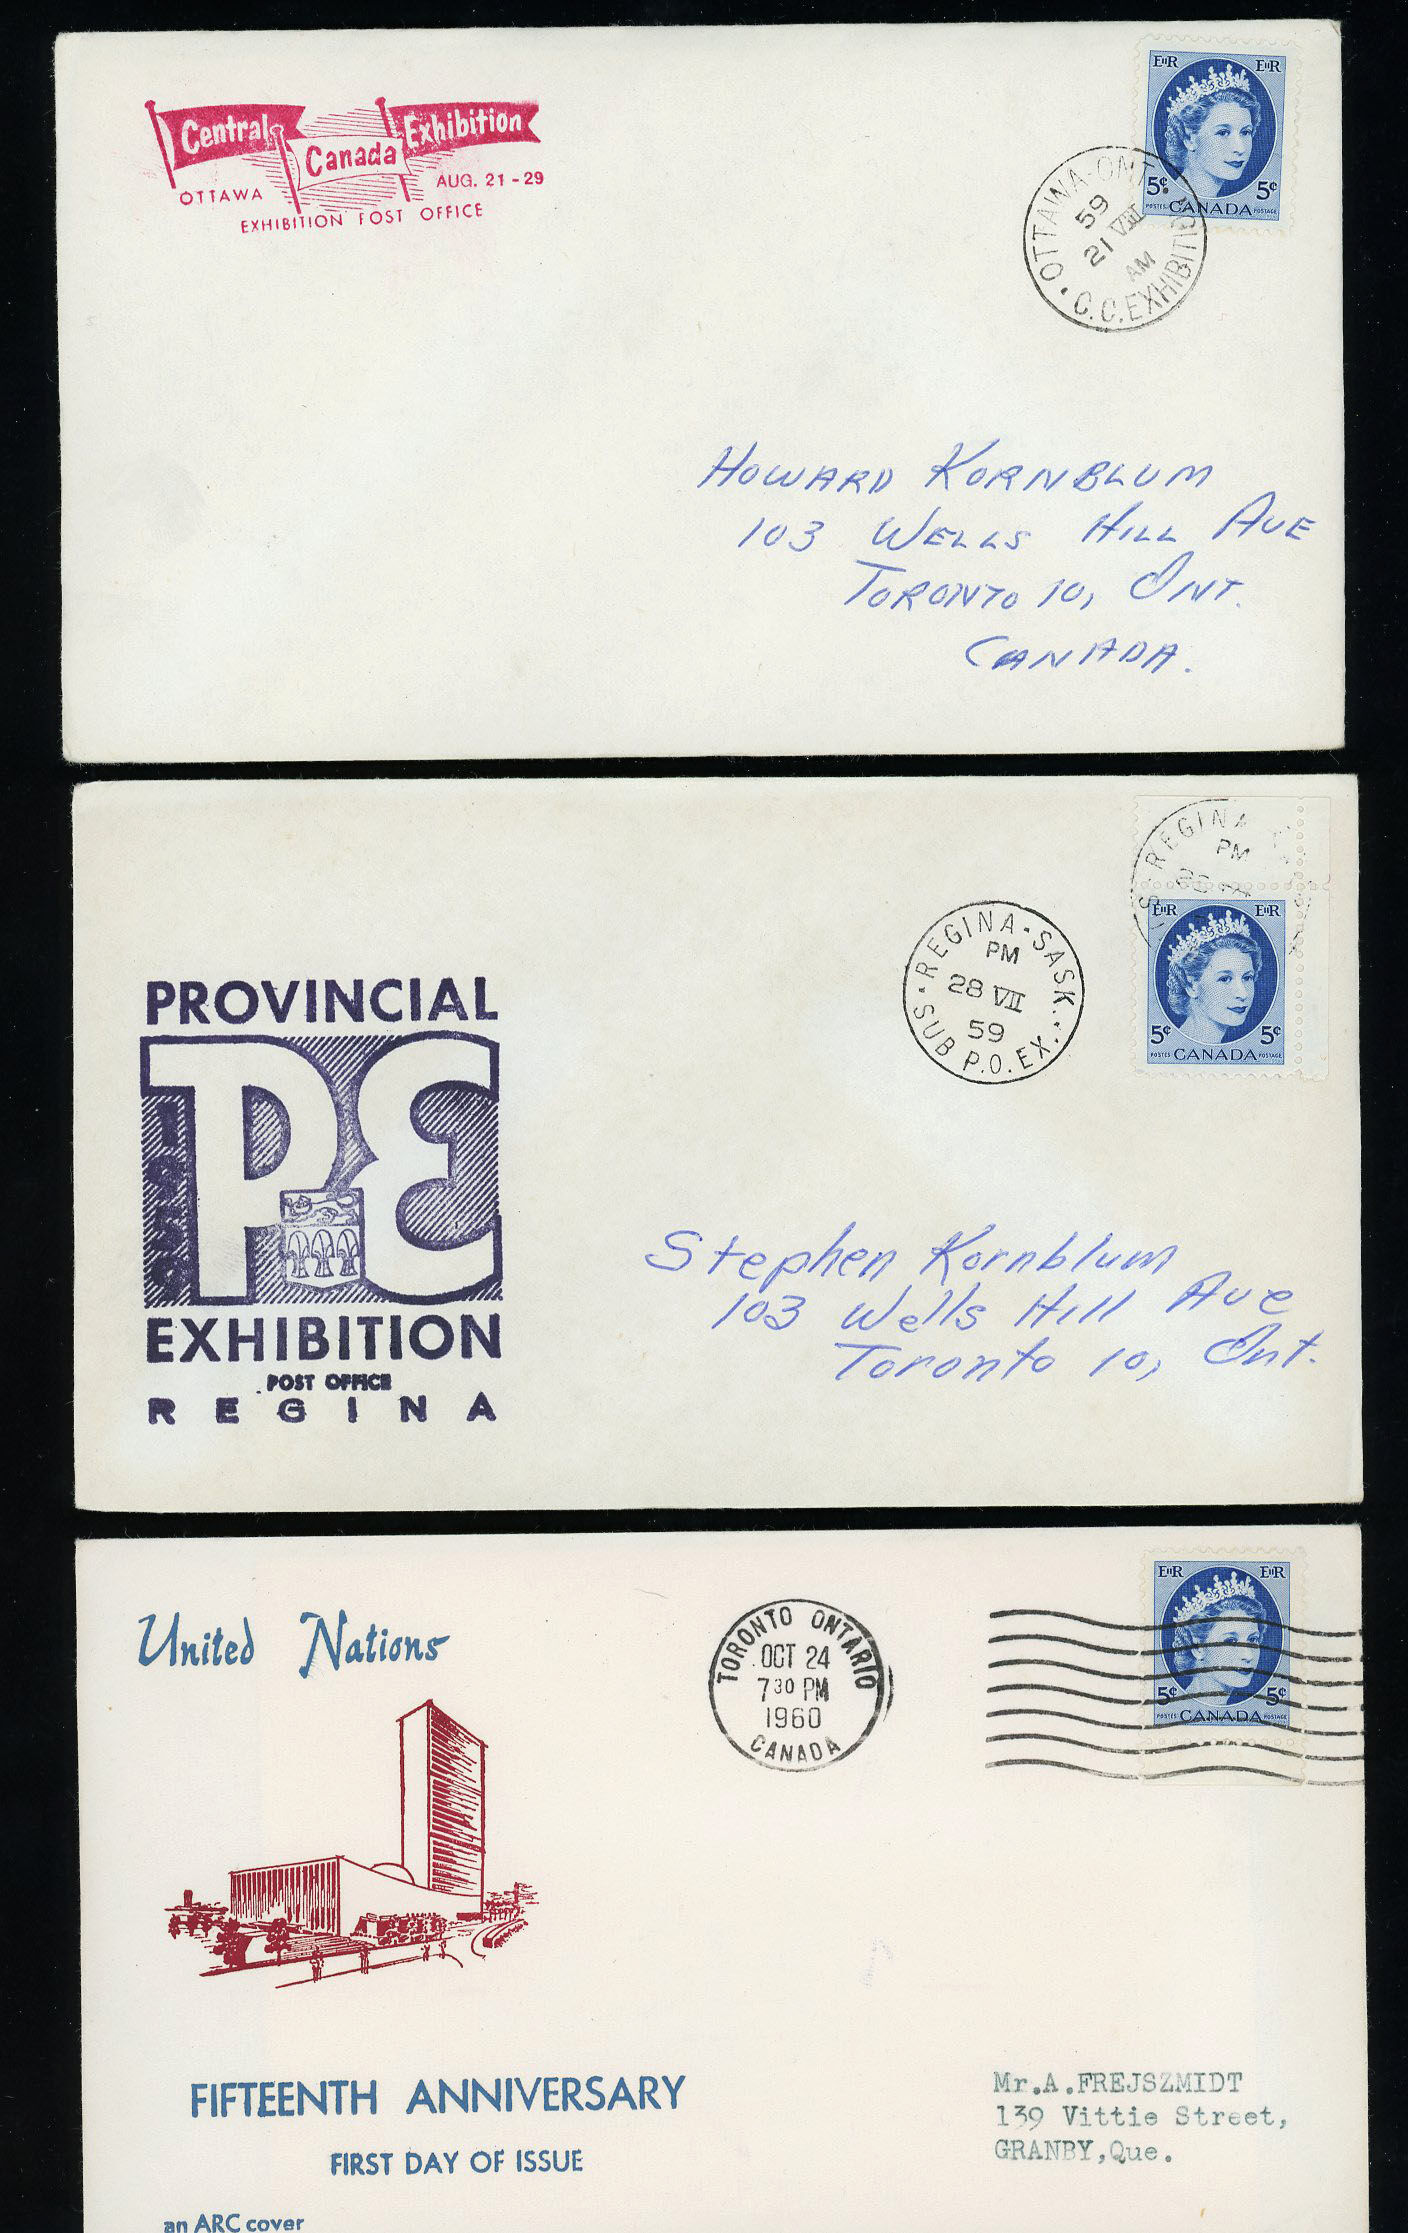 Central
Canada
Exhibition
OTTAWA
AUG. 21 - 29
EXHIBITION POST OFFICE
EIIR EIIR
5¢ 5¢
POSTES CANADA POSTAGE
OTTAWA-ONT.
59
21 VIII
AM
C.C. EXHIBITION
HOWARD KORNBLUM
103 WELLS HILL AVE
TORONTO 10, ONT.
CANADA.
PROVINCIAL
PE
1959
EXHIBITION
POST OFFICE
REGINA
REGINA-SASK.
PM
28 VII
59
SUB P.O. EX.
REGINA
PM
EIIR EIIR
5¢ 5¢
POSTES CANADA POSTAGE
Stephen Kornblum
103 Wells Hill Ave
Toronto 10, Ont.
United Nations
TORONTO ONTARIO
OCT 24
7 30 PM
1960
CANADA
EIIR EIIR
5¢ 5¢
POSTES CANADA POSTAGE
FIFTEENTH ANNIVERSARY
FIRST DAY OF ISSUE
an ARC cover
Mr.A.FREJSZMIDT
139 Vittie Street,
GRANBY,Que.